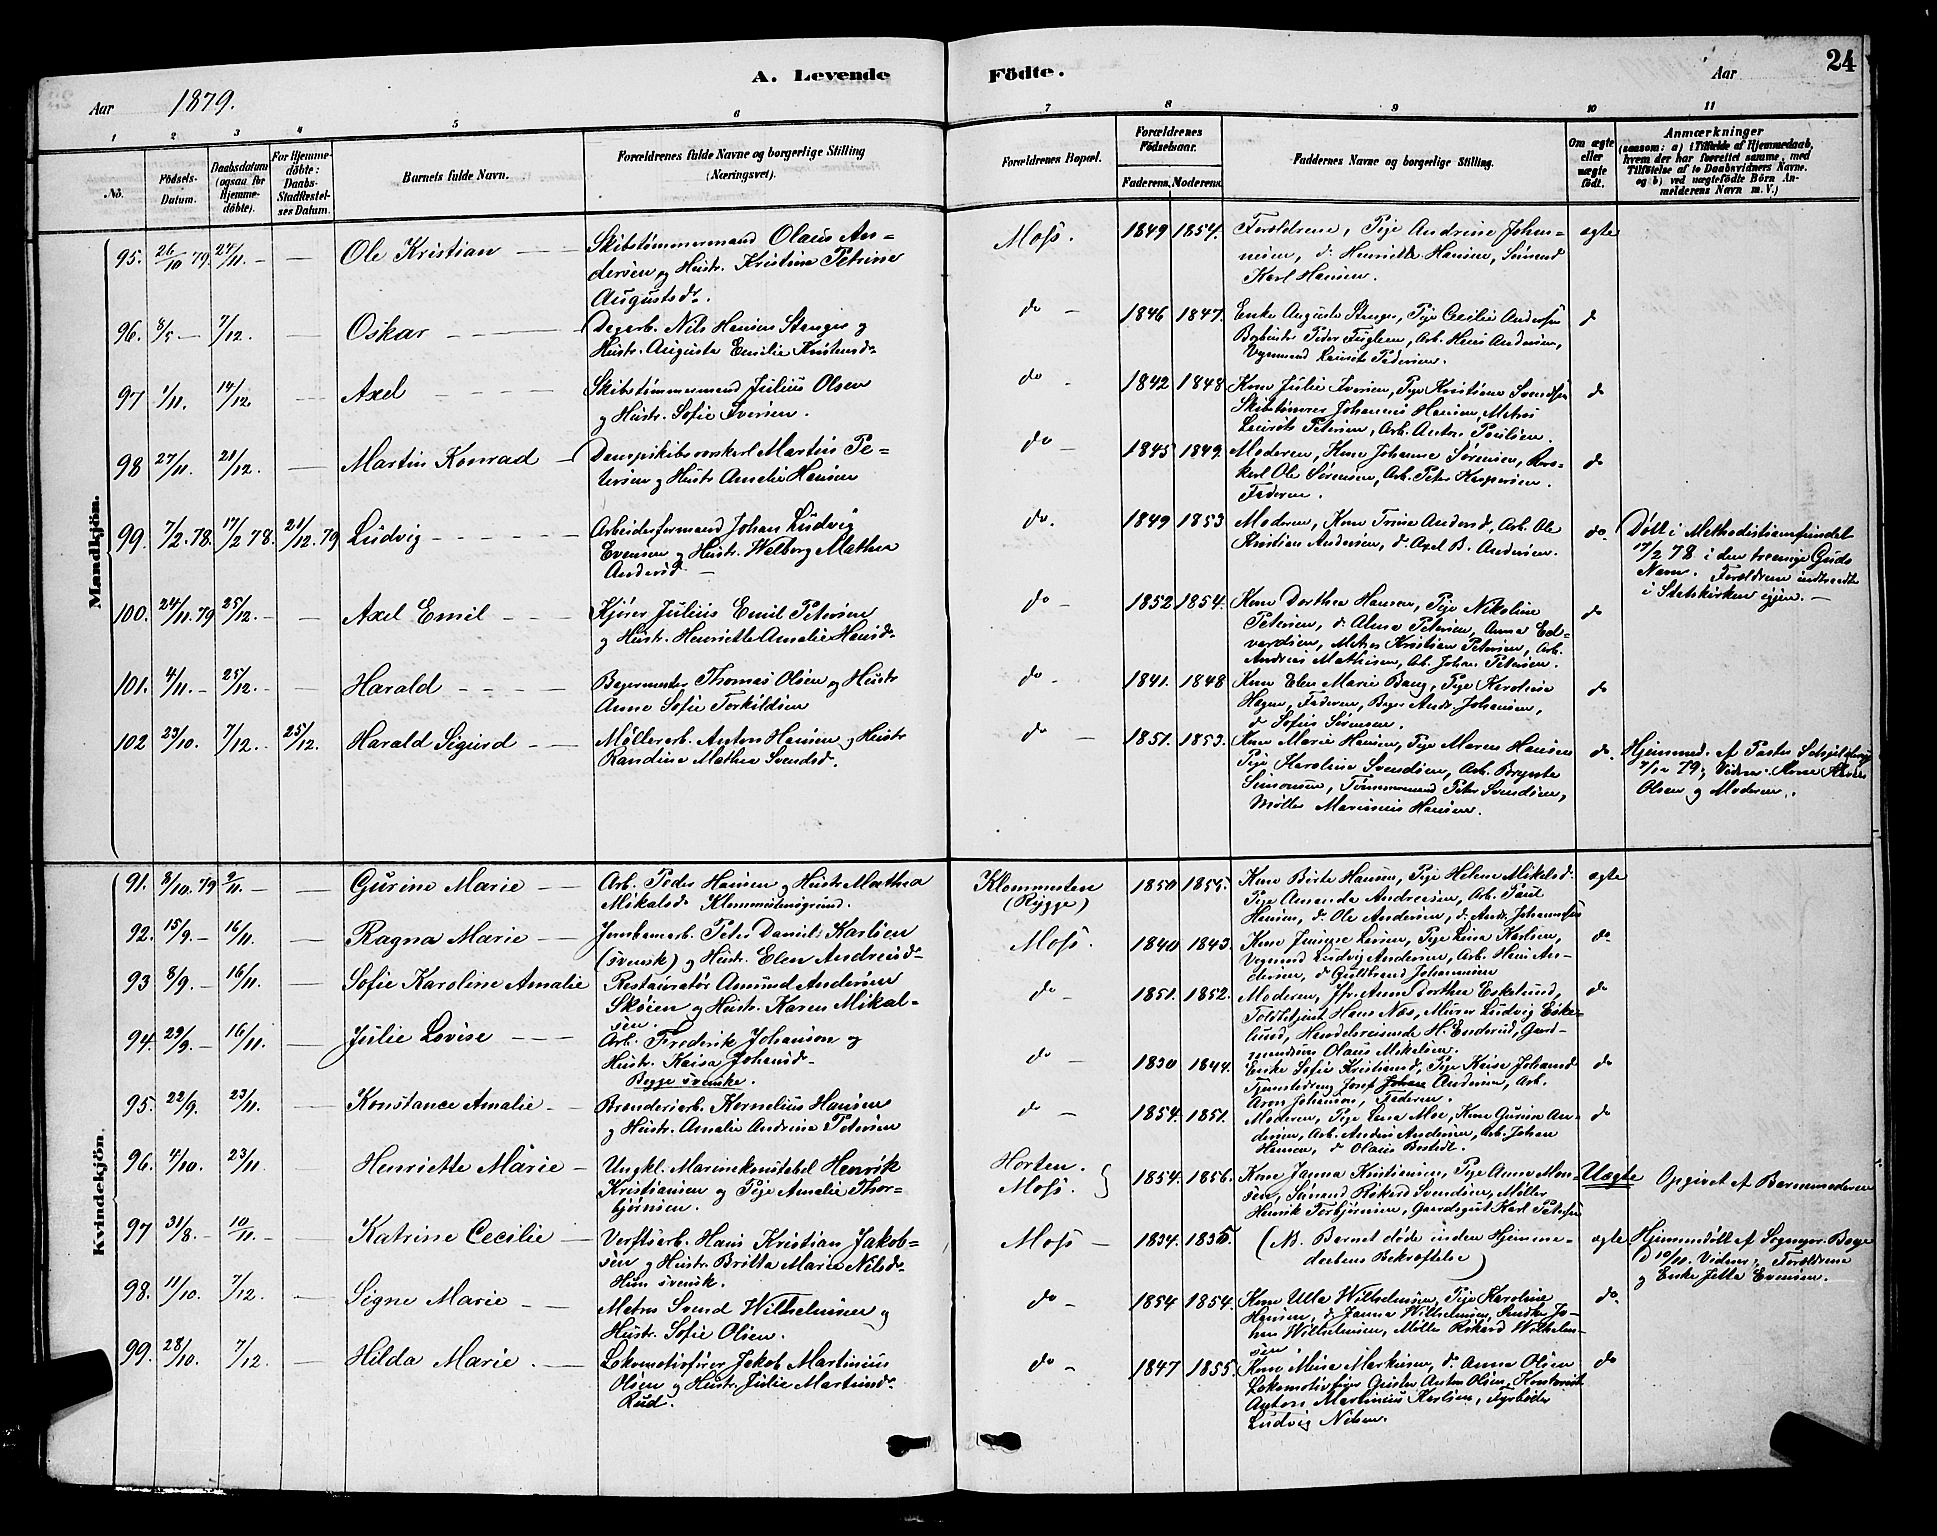 24
A. Levende Födte.
Aar 1879. Aar
1 2 3 4 5 6 7 8 9 10 11
No.
Födsels-
Datum.
Daabsdatum
(ogsaa for
Hjemme-
döbte).
For Hjemme-
döbte:
Daabs-
Stadfæstel-
ses Datum.
Barnets fulde Navn.
Forældrenes fulde Navne og borgerlige Stilling
(Næringsvei).
Forældrenes Bopæl.
Forældrenes
Födselsaar.
Faderens. Moderens.
Faddernes Navne og borgerlige Stilling.
Om ægte
eller
uægte
født.
Anmærkninger
(saasom: a) i Tilfælde af Hjemmedaab,
hvem der har forrettet samme, med
Tilföielse af to Daabsvidners Navne,
og b) ved uægtefödte Börn An-
melderens Navn m. V.)
Mandkjön.
95. 26/10 79. 24/11. — — Ole Kristian —
Skibstømmermand Olaus An-
dersen og Hustr. Kristine Petrine
Augustsdr.
Moss. 1849 1854.
Forældrene, Pige Andrine Johan-
nesen, d. Henriette Hansen, Sømand
Karl Hansen.
ægte
96. 8/5 — 7/12. — Oskar —
Dagarb. Nils Hansen Stenger og
Hustr. Augusta Emilie Kristensdr.
do — 1846 1847.
Enke Auguste Stenger, Pige Cecilie Andersen
Peder Fuglesen, Arb. Hans Andersen,
Vognmand Laurits Pedersen.
do
97 1/11. 14/12. — Axel —
Skibstømmermand Julius Olsen
og Hustr. Sofie Iversen.
do - 1842 1848
Kone Julie Iversen, Pige Kristiane Svendsen
Skibstømrer Johannes Hansen, Matros
Laurits Petersen, Arb. Anton Poulsen.
do
98 27/11. 21/12. — Martin Konrad —
Dampskibsvorskarl Martin Pe-
tersen og Hustr. Amalie Hansen
do — 1845 1849.
Moderen, Kone Johanne Sørensen,
karl Ole Sørensen, Arb. Peter Kaspersen.
Faderen.
do
99. 7/2. 78. 17/2 78. 21/12. 79 Ludvig —
Arbeidsformand Johan Ludvig
Evensen og Hustr. Walborg Mathea
Andersd. —
do. 1849 1853
Moderen, Kone Trine Andersd., Arb. Ole
Kristian Andersen, d. Axel B. Andersen.
do.
Døbt i Methodistsamfundet
17/2 78 i den treenige Guds
Navn. Forældrene indtraadte
i Statskirken igjen. —
100. 24/11. 79 25/12. — — Axel Emil —
Kjører Julius Emil Petersen
og Hustr. Henriette Amalie Hansdr.
do — 1852 1854.
Kone Dorthea Hansen, Pige Nikoline
Petersen, d. Alma Petersen, Anna Ed-
vardsen, Matros Kristian Petersen, Arb.
Andreas Mathisen, Arb. Johan Petersen.
do
101. 4/11. — 25/12. — — Harald —
Bagermester Thomas Olsen og Hustr
Anne Sofie Torkildsen
do - 1841. 1848
Kone Elen Marie Bang, Pige Karoline
Hagen, Faderen, Bager Andr. Johansen,
d. Sofus Sørensen.
do
102 23/10. 7/12. — 25/12. Harald Sigurd —
Møllerarb. Anton Hansen og Hustr
Randine Mathea Svendsd.
do — 1851. 1853.
Kone Marie Hansen, Pige Maren Hansen
Pige Karoline Svendsen, Arb. Brynte
Simonsen, Tømmermand Peter Svendsen,
Møller Marinius Hansen.
do.
Hjemmed. af Pastor
7/12 79; Vidner: Arne
Olsen og Moderen.
Kvindekjön.
91. 8/10. 79 2/11. — — Gurine Marie —
Arb. Peder Hansen og Hustr Mathea
Mikalsdr. Klommestensgrund.
Klommesten
(Rygge)
1850 1855.
Kone Birte Hansen, Pige Helene Mikelsd.
Pige Amanda Andreasen, Arb. Paul
Hansen, d. Ole Andersen, d. Andr. Johannesen
ægte
92. 15/9. — 16/11. — Ragna Marie —
Jernbanearb. Peter Daniel Karlsen
(svensk) og Hustr. Elen Andreasd.
Moss. 1840 1843.
Kone Jensine Larsen, Pige Lina Karlsen,
Vognmand Ludvig Andersen, Arb. Hans An-
dersen, d. Gulbrand Johannesen
do
93 8/9. — 16/11. — Sofie Karoline Amalie
Restauratør Amund Andersen
Skøien og Hustr. Karen Mikal-
sen.
do — 1851. 1852.
Moderen, Jfr. Anne Dorthea Eskelund,
Toldbetjent Hans Næs, Murer Ludvig Eske-
lund, Handelsreisende H. Enderud, Gaard-
mandssøn Olaus Mikelsen.
do
94. 29/9. — 16/11. — Julie Lovise —
Arb. Frederik Johanson og
Hustr. Kaisa Johansd.
Begge svenske.
do — 1830 1844.
Enke Sofie Kristiansd., Pige Kaisa Johansd
Tjenestedreng Josef Johan Andersen, Arb.
Aron Johanson, Faderen.
do
95. 22/9. 23/11. — Konstance Amalie —
Brænderiarb. Kornelius Hansen
og Hustr. Amalie Andrine Petersen
do — 1854. 1851.
Moderen, Pige Lina Moe, Kone Gurine An-
dersen, Arb. Anders Andersen, Arb. Johan
Hansen, d. Olaus Bostedt.
do
96. 4/10. 23/11. — Henriette Marie —
Ungkl. Marinekonstabel Henrik
Kristiansen og Pige Amalie Thor-
bjørnsen.
Horten.
Moss.
1854. 1856.
Kone Janna Kristiansen, Pige Anna Mon-
sen, Sømand Rikard Svendsen, Møller
Henrik Torbjørnsen, Gaardsgut Karl Petersen
Uægte
Opgivet af Barnemoderen
97 31/8. 10/11. — — Katrine Cecilie —
Verftsarb. Hans Kristian Jakob-
sen og Hustr. Britta Maria Nilsdr.
Hun svensk.
Moss — 1834. 1835.
(NB. Barnet døde inden Hjemme-
daabens Bekræftelse)
ægte
Hjemmedøbt af Sognepr. Bøge
d 10/10. Vidner: Forældrene
og Enke Jette Evensen.
98. 11/10. 7/12. — Signe Marie —
Matros Svend Wilhelmsen og
Hustr. Sofie Olsen.
do — 1854 1854.
Kone Ulla Wilhelmsen, Pige Karoline
Hansen, d. Janna Wilhelmsen, Snedker Jo-
han Wilhelmsen, Møller Rikard Wilhelm-
sen
do.
99. 28/10. 7/12. — Hilda Marie. —
Lokomotivfører Jakob Martinius
Olsen og Hustr. Julie Martinsd.
Rud.
do — 1847 1855.
Kone Mina Markusen, d. Anna Olsen
Lokomotivfyrer Grister Anton Olsen, Kontorist
Anton Martinius Karlsen, Fyrbøder
Ludvig Nilsen.
do